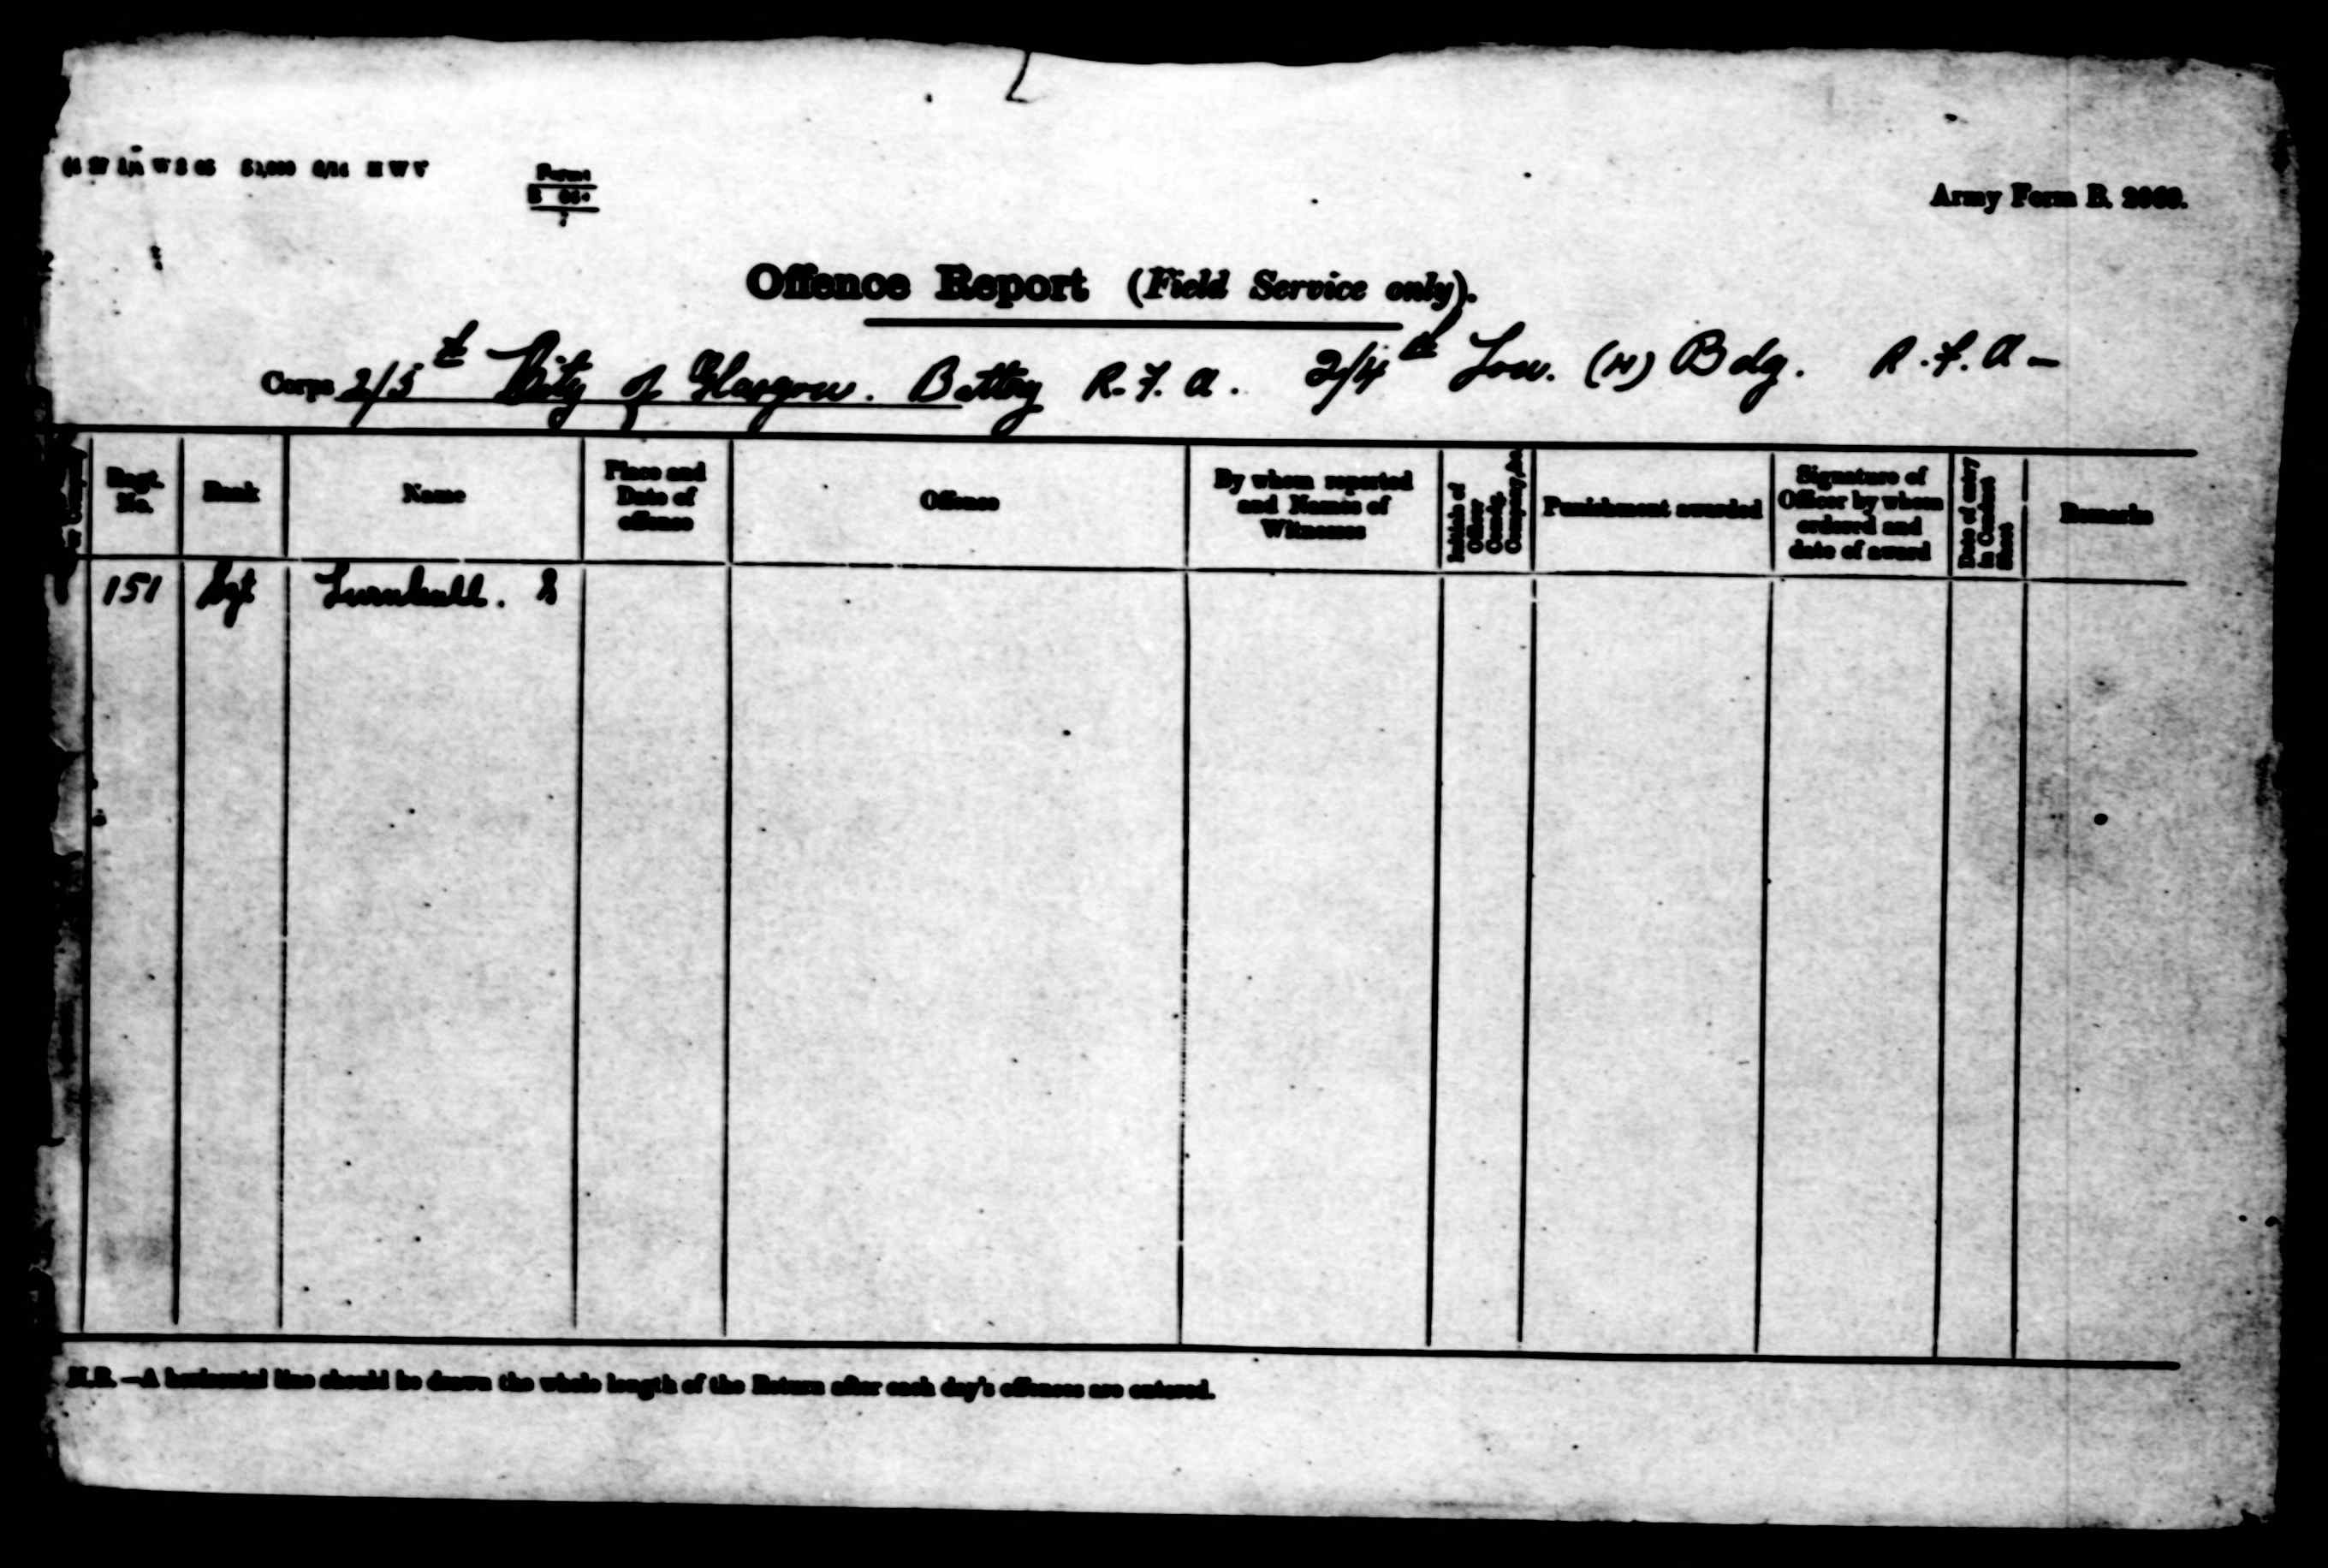 Army Form B. 2069.
Offence Report (Field Service only).
Corps 2/5th City of Glasgow. Battery R.F.A. 2/4th Low. (H) Bdg. R.F.A -
Regt. No. Rank Name Place and Date of offence Offence By whom reported and Names of Witnesses Initials of Officer Comdg. Company, &c. Punishment awarded Signature of Officer by whom ordered and date of award Date of entry in Conduct Sheet Remarks
151 Sgt Turnbull.
N.B.—A horizontal line should be drawn the whole length of the Return after each day's offences are entered.